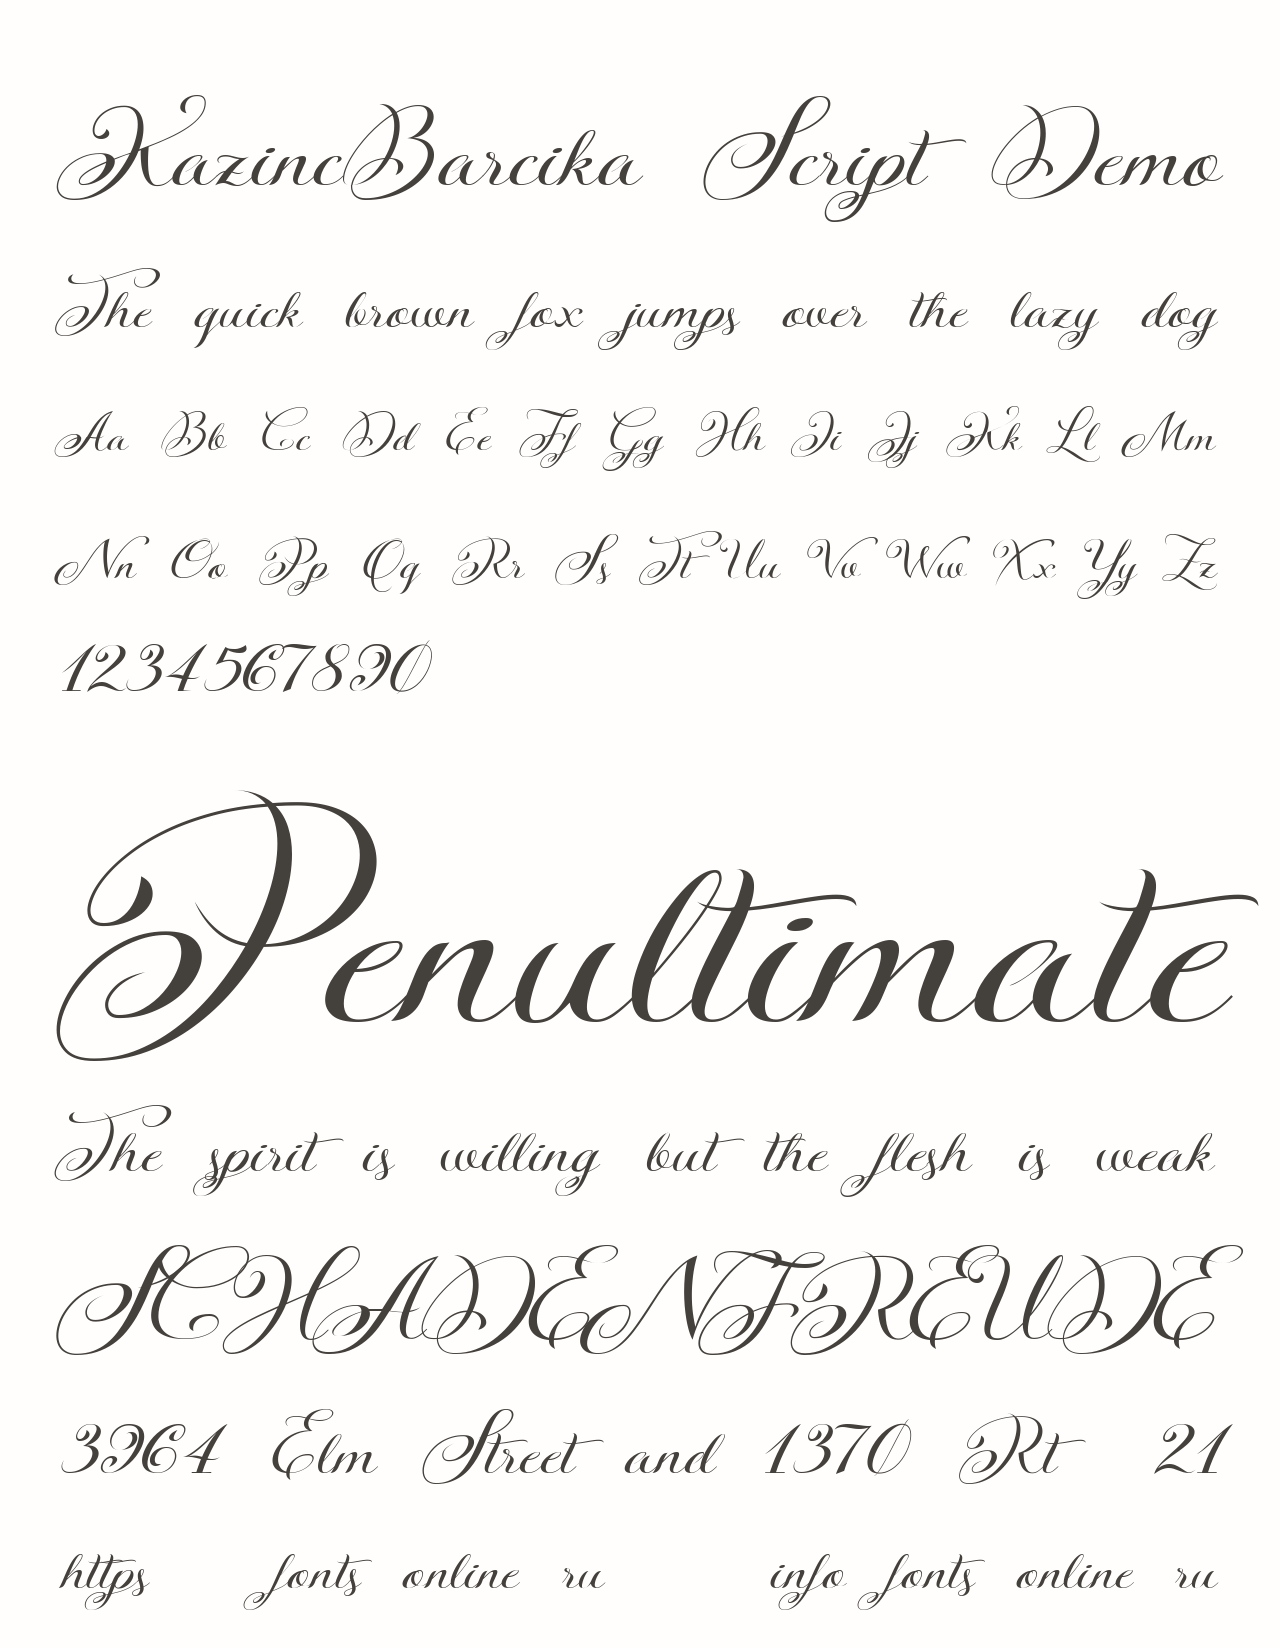 KazincBarcika Script Demo
The quick brown fox jumps over the lazy dog
Aa Bb Cc Dd Ee Ff Gg Hh Ii Jj Kk Ll Mm
Nn Oo Pp Qq Rr Ss Tt Uu Vv Ww Xx Yy Zz
1234567890
Penultimate
The spirit is willing but the flesh is weak
SCHADENFREUDE
3964 Elm Street and 1370 Rt 21
https fonts online ru info fonts online ru